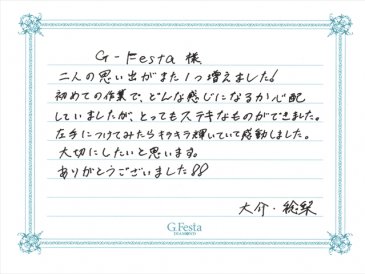 G-Festa 様
二人の思い出がまた1つ増えました!
初めての作業で、どんな感じになるか心配
していましたが、とってもステキなものができました。
左手につけてみたらキラキラ輝いていて感動しました。
大切にしたいと思います。
ありがとうございました!!
大介・絵梨
G.Festa
DIAMOND